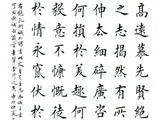 高遠慕先賢絕
之志揭然有所
伸去細碎廣咨
何損於美趣何
毅意不慷慨徒
於情永竄伏於